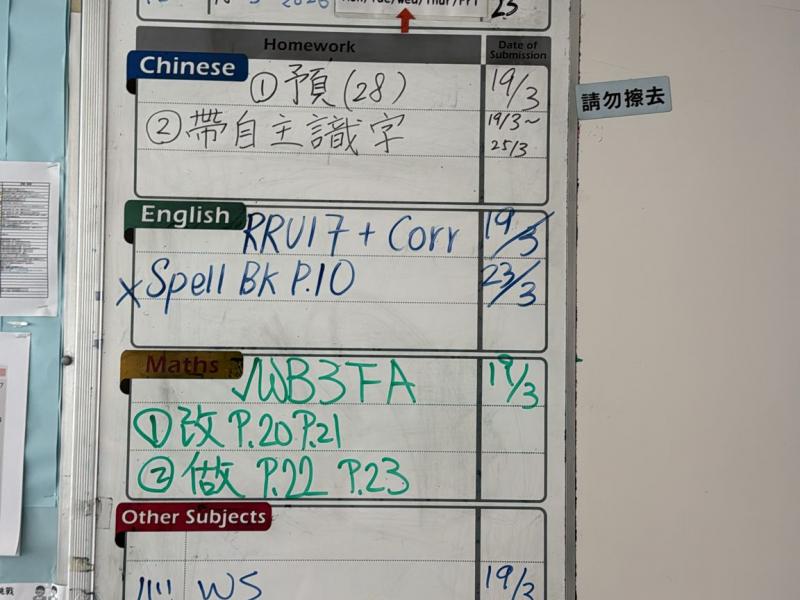 2026
Mon/Tue/Wed/Thur/Fri
23
Homework
Date of Submission
Chinese
① 預(28)
19/3
② 帶自主識字
19/3~
25/3
請勿擦去
English
RRU17 + Corr
19/3
×Spell BK P.10
23/3
Maths
√WB3FA
19/3
① 改 P.20 P.21
② 做 P.22 P.23
Other Subjects
WS
19/3